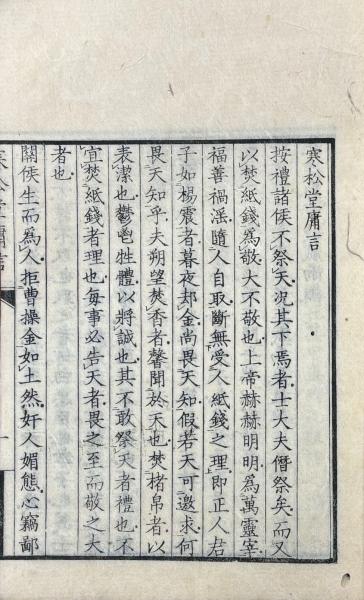 寒松堂庸言
按禮諸侯不祭天况其下焉者士大夫僭祭矣而又
以焚紙錢為敬大不敬也上帝赫赫明明為萬靈宰
福善禍淫隨人自取斷無愛人紙錢之理即正人君
子如楊震者暮夜却金尚畏天知假若天可邀求何
畏天知乎夫朔望焚香者馨聞於天也焚楮帛者以
表潔也鬱鬯牲醴以將誠也其不敢祭天者禮也不
宜焚紙錢者理也每事必告天者畏之至而敬之大
者也
關侯生而為人拒曹操金如土然奸人媚態心竊鄙
寒松堂庸言